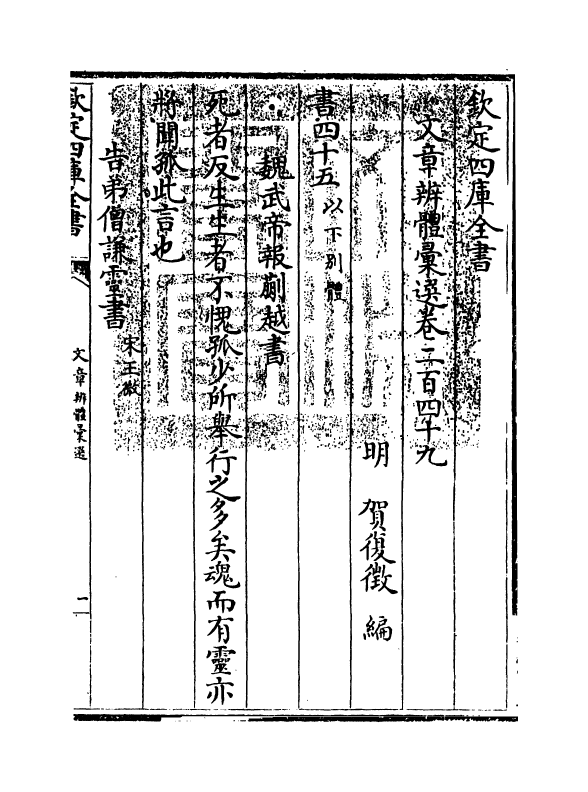 欽定四庫全書
文章辨體彙選卷二百四十九
明 賀復徵 編
書四十五 以下别體
魏武帝報蒯越書
死者反生生者不愧孤少所舉行之多矣魂而有靈亦
將聞孤此言也
告弟僧謙靈書 宋王微
欽定四庫全書
文章辨體彙選
一